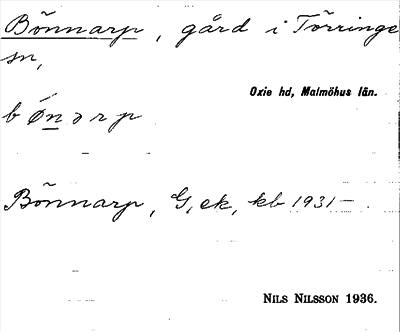 Bönnarp, gård i Törringe
sn,
Oxie hd, Malmöhus län.
bǿnarp
Bönnarp, G, ek, kb 1931—.
Nils Nilsson 1936.